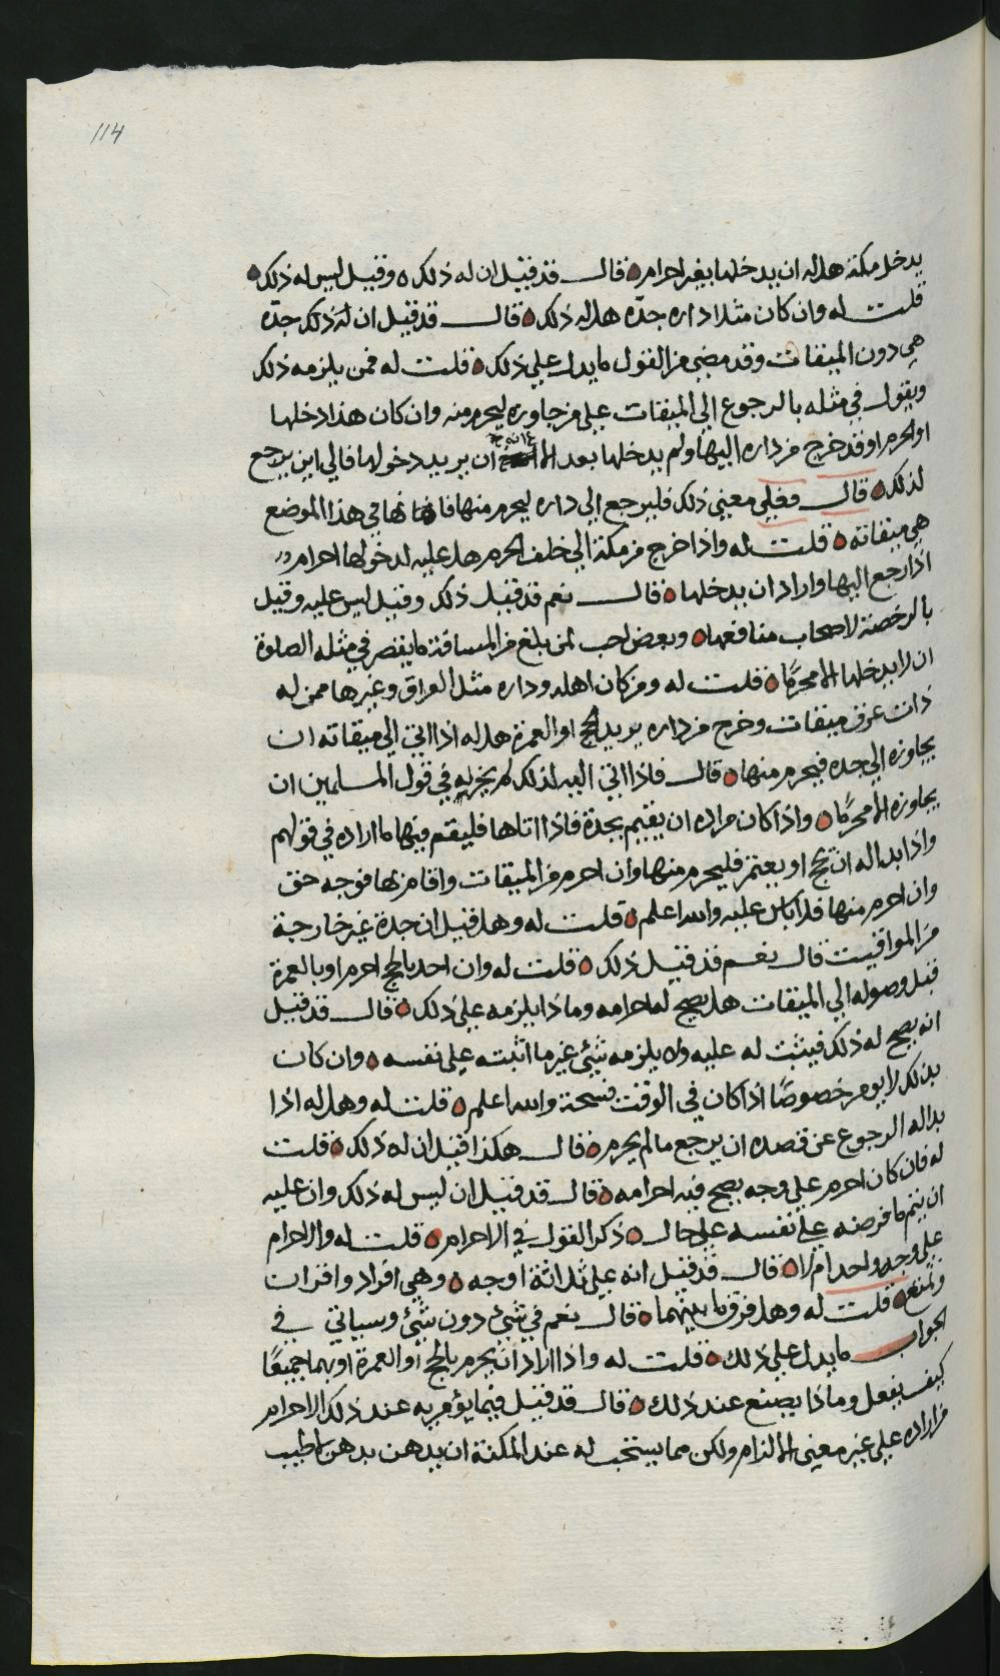 114
يدخل مكة هل له ان يدخلها بغير احرام ه قال قد قيل ان له ذلك ه وقيل ليس له ذلك ه
قلت له وان كان مثلا داره جدّه هل له ذلك ه قال قد قيل ان له ذلك جدّه
هي دون الميقات وقد مضى من القول ما يدل علي ذلك ه قلت له فمن يلزمه ذلك
ويقول في مثله بالرجوع الي الميقات علي من جاوزه ليحرم منه وان كان هذا دخلها
او الحرم او قد خرج من داره اليها ولم يدخلها بعد الا انه يريد دخولها فالي اين يرجع
لذلك ه قال فعلي معني ذلك فليرجع الي داره ليحرم منها فانها في هذا الموضع
هي ميقاته ه قلت له واذا خرج من مكة الي خلف الحرم هل عليه لدخولها احرام
اذا رجع اليها واراد ان يدخلها ه قال نعم قد قيل ذلك وقيل ليس عليه وقيل
بالرخصة لاصحاب منافعها ه وبعض احب لمن بلغ من المسافة ما يقصر في مثله الصلوة
ان لا يدخلها الا محرمًا ه قلت له ومن كان اهله وداره مثل العراق وغيرها ممن له
ذات عرق ميقات وخرج من داره يريد الحج او العمرة هل له اذا اتي الي ميقاته ان
يجاوزه الي جده فيحرم منها ه قال فاذا اتي اليه لذلك لم يجز له في قول المسلمين ان
يجاوزه الا محرمًا ه واذا كان مراده ان يقيم بجدة فاذا اتاها فليقم فيها ما اراده في قولهم
واذا بدا له ان يحج او يعتمر فليحرم منها وان احرم من الميقات واقام بها فوجه حق
وان احرم منها فلا باس عليه والله اعلم ه قلت له وهل قيل ان جدة غير خارجة
من المواقيت قال نعم قد قيل ذلك ه قلت له وان احد بالحج احرم او بالعمرة
قبل وصوله الي الميقات هل يصح له احرامه وماذا يلزمه علي ذلك ه قال قد قيل
انه يصح له ذلك فيثبت له عليه ولا يلزمه شيئ غير ما اثبته علي نفسه ه وان كان
بذلك لا يومر خصوصًا اذا كان في الوقت فسحة والله اعلم ه قلت له وهل له اذا
بدا له الرجوع عن قصده ان يرجع ما لم يحرم ه قال هكذا قيل ان له ذلك ه قلت
له فان كان احرم علي وجه يصح فيه احرامه ه قال قد قيل ان ليس له ذلك وان عليه
ان يتم ما فرضه علي نفسه علي حال ه ذكر القول في الاحرام ه قلت له والاحرام
علي وجه واحد ام لا ه قال قد قيل انه علي ثلاثة اوجه ه وهي افراد واقران
وتمتع ه قلت له وهل فرق ما بينهما ه قال نعم في شيئ دون شيئ وسياتي في
الجواب ما يدل علي ذلك ه قلت له واذا اراد ان يحرم بالحج او العمرة او بهما جميعًا
كيف يفعل وماذا يصنع عند ذلك ه قال قد قيل فيما يؤمر به عند ذلك الاحرام
من اراده علي غير معني الالزام ولكن مما يستحب له عند المكنة ان يدهن بدهن طيب